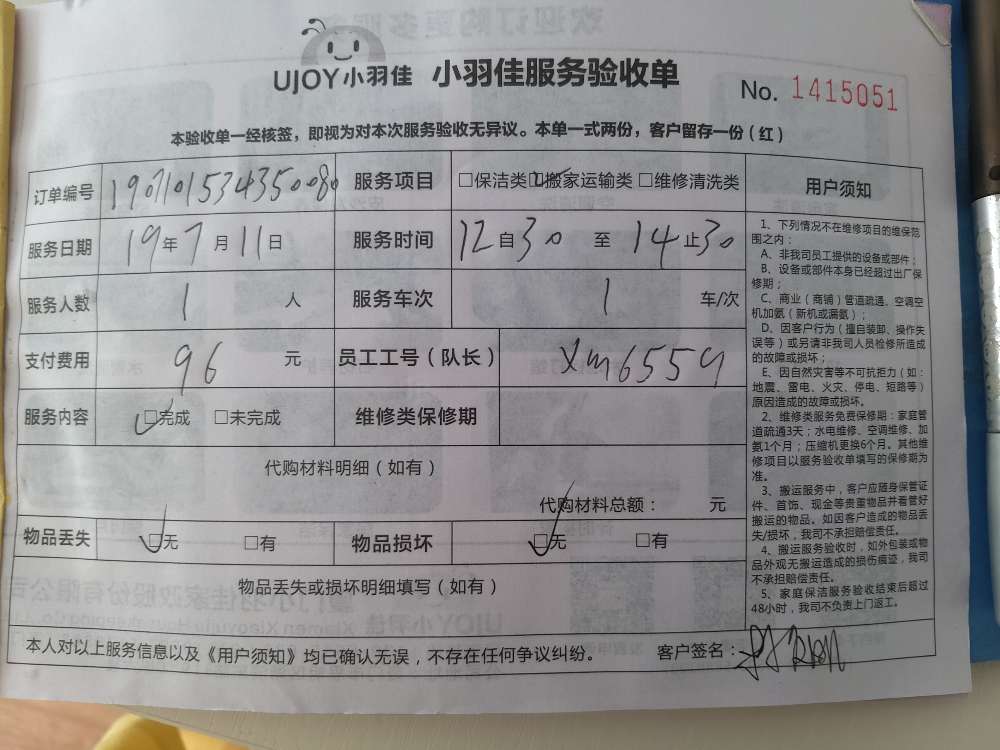 UJOY小羽佳 小羽佳服务验收单 No. 1415051
本验收单一经核签，即视为对本次服务验收无异议。本单一式两份，客户留存一份（红）
订单编号 1907101534350080 服务项目 □保洁类 ☑搬家运输类 □维修清洗类
服务日期 19年7月11日 服务时间 12自30 至 14止30
服务人数 1 人 服务车次 1 车/次
支付费用 96 元 员工工号（队长） xm6559
服务内容 ☑完成 □未完成 维修类保修期
代购材料明细（如有）
代购材料总额： 元
物品丢失 ☑无 □有 物品损坏 ☑无 □有
物品丢失或损坏明细填写（如有）
本人对以上服务信息以及《用户须知》均已确认无误，不存在任何争议纠纷。 客户签名：
用户须知
1、下列情况不在维修项目的维保范
围之内：
A、非我司员工提供的设备或部件；
B、设备或部件本身已经超过出厂保
修期；
C、商业（商铺）管道疏通、空调空
机加氨（新机或漏氨）；
D、因客户行为（擅自装卸、操作失
误等）或另请非我司人员检修所造成
的故障或损坏；
E、因自然灾害等不可抗拒力（如：
地震、雷电、火灾、停电、短路等）
原因造成的故障或损坏。
2、维修类服务免费保修期：家庭管
道疏通3天；水电维修、空调维修、加
氨1个月；压缩机更换6个月。其他维
修项目以服务验收单填写的保修期为
准。
3、搬运服务中，客户应随身保管证
件、首饰、现金等贵重物品并看管好
搬运的物品。如因客户造成的物品丢
失/损坏，我司不承担赔偿责任。
4、搬运服务验收时，如外包装或物
品外观无搬运造成的损伤痕迹，我司
不承担赔偿责任。
5、家庭保洁服务验收结束后超过
48小时，我司不负责上门返工。